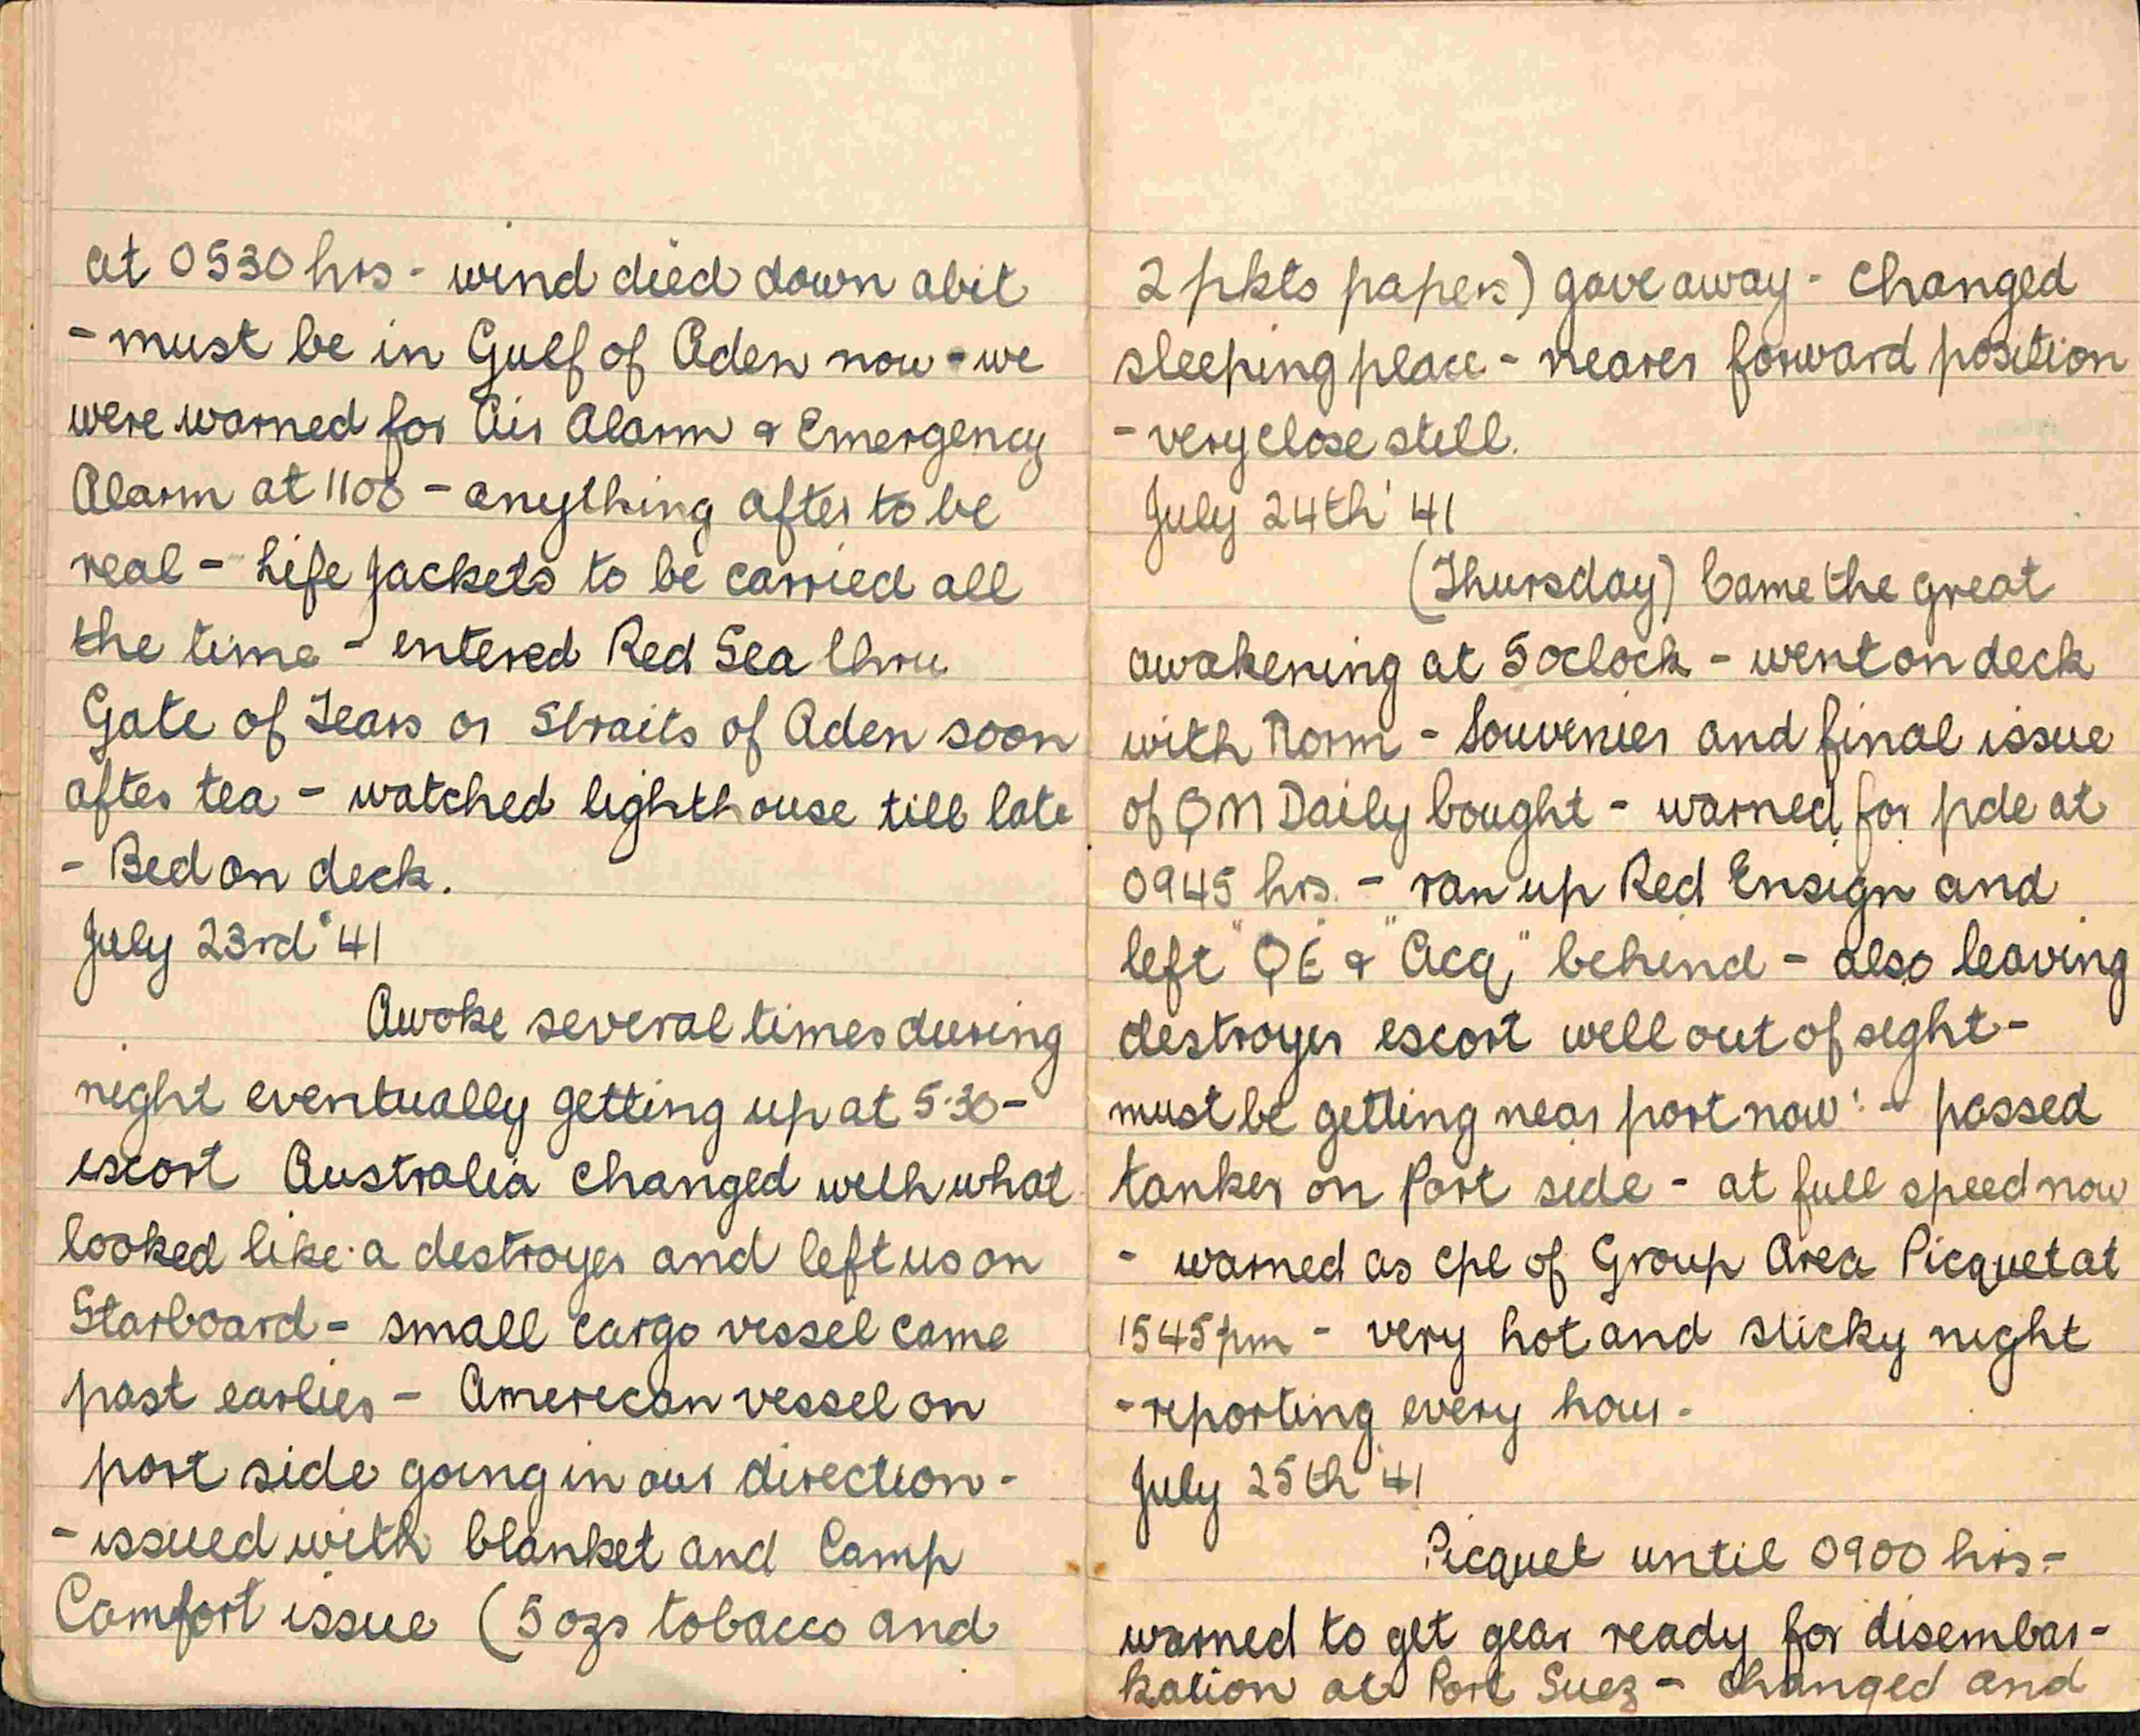 at 0530 hrs - wind died down abit
- must be in Gulf of Aden now - we
were warned for Air Alarm & Emergency
Alarm at 1100 - anything after to be
real - Life Jackets to be carried all
the time - entered Red Sea thru
Gate of Tears or Straits of Aden soon
after tea - watched lighthouse till late
- Bed on deck.
July 23rd '41
Awoke several times during
night eventually getting up at 5.30 -
escort Australia changed with what
looked like a destroyer and left us on
Starboard - small cargo vessel came
past earlier - American vessel on
port side going in our direction -
- issued with blanket and Camp
Comfort issue (5 ozs tobacco and
2 pkts papers) gave away - changed
sleeping place - nearer forward position
- very close still.
July 24th '41
(Thursday) Came the great
awakening at 5 oclock - went on deck
with Norm - Souvenier and final issue
of QM Daily bought - warned for pde at
0945 hrs. - ran up Red Ensign and
left "QE & "Acq" behind - also leaving
destroyer escort well out of sight -
must be getting near port now! - passed
tanker on Port side - at full speed now
- warned as cpl of Group Area Picquet at
1545pm - very hot and sticky night
- reporting every hour -
July 25th '41
Picquet until 0900 hrs -
warned to get gear ready for disembar-
kation at Port Suez - changed and